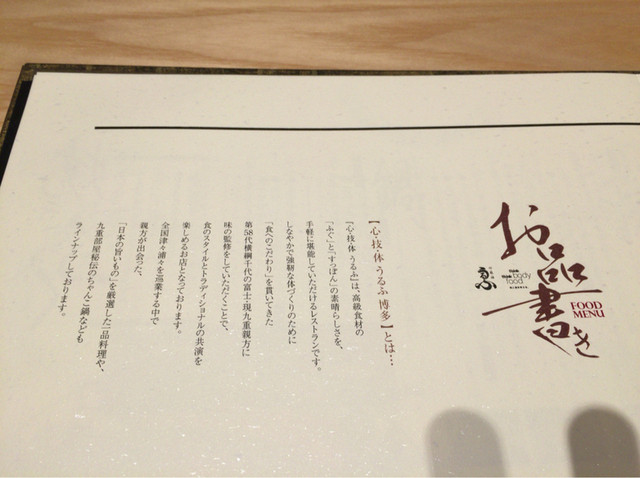 お品書き
FOOD
MENU
body
food
うるふ
【心・技・体 うるふ 博多】とは…
『心・技・体 うるふ』は、高級食材の
「ふぐ」と、「すっぽん」の素晴らしさを、
手軽に堪能していただけるレストランです。
しなやかで強靭な体づくりのために
「食へのこだわり」を貫いてきた
第58代横綱千代の富士・現九重親方に
味の監修をしていただくことで、
食のスタイルとトラディショナルの共演を
楽しめるお店となっております。
全国津々浦々を巡業する中で
親方が出会った、
「日本の旨いもの」を厳選した一品料理や、
九重部屋秘伝のちゃんこ鍋なども
ラインナップしております。